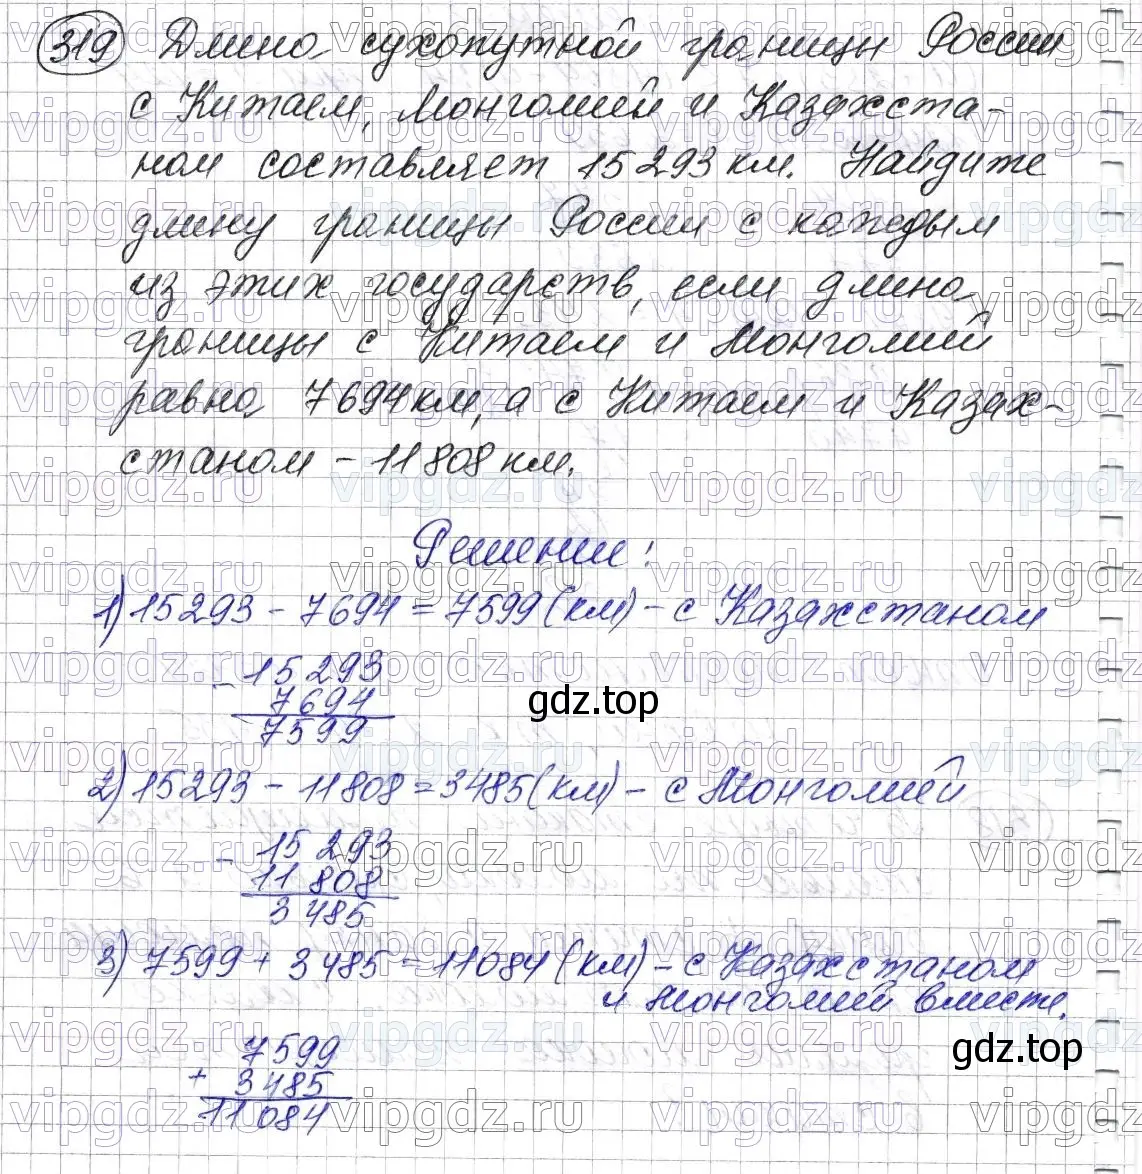 319 Длина сухопутной границы России
с Китаем, Монголией и Казахста-
ном составляет 15 293 км. Найдите
длину границы России с каждым
из этих государств, если длина
границы с Китаем и Монголией
равна 7 694 км, а с Китаем и Казах-
станом – 11 808 км.
Решение:
1) 15 293 – 7 694 = 7 599 (км) – с Казахстаном
– 15 293
7 694
7 599
gdz.top
2) 15 293 – 11 808 = 3 485 (км) – с Монголией
– 15 293
11 808
3 485
3) 7 599 + 3 485 = 11 084 (км) – с Казахстаном
и Монголией вместе.
7 599
+ 3 485
11 084
gdz.top
vipgdz.ru